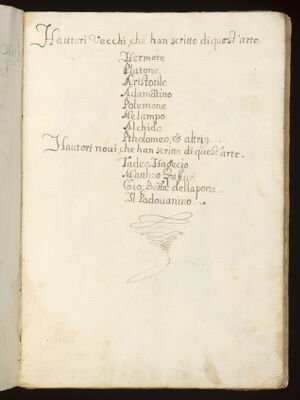 Hautori vecchi che han scritto di quest'arte
Hermete
Platone
Aristotile
Adamatino
Polemone
Melampo
Alchido
Ptholomeo, & altri
Hautori noui che han scritto di quest'arte.
Tadeo Hagecio
Mattheo
Gio: Batta dellaporta
Il Padouanino